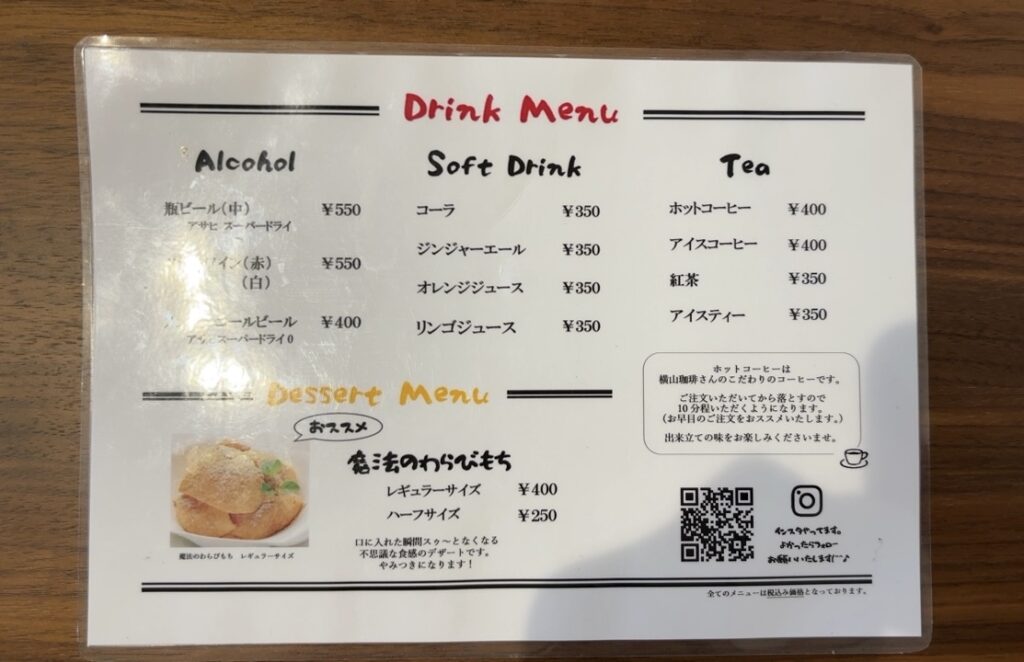 Drink Menu
Alcohol
瓶ビール(中) ¥550
アサヒ スーパードライ
イン(赤) ¥550
(白)
ールビール ¥400
アサヒスーパードライ0
Soft Drink
コーラ ¥350
ジンジャーエール ¥350
オレンジジュース ¥350
リンゴジュース ¥350
Tea
ホットコーヒー ¥400
アイスコーヒー ¥400
紅茶 ¥350
アイスティー ¥350
ホットコーヒーは
横山珈琲さんのこだわりのコーヒーです。
ご注文いただいてから落とすので
10分程いただくようになります。
(お早目のご注文をおススメいたします。)
出来立ての味をお楽しみくださいませ。
Dessert Menu
おススメ
魔法のわらびもち
レギュラーサイズ ¥400
ハーフサイズ ¥250
口に入れた瞬間スゥ～となくなる
不思議な食感のデザートです。
やみつきになります！
魔法のわらびもち レギュラーサイズ
インスタやってます。
よかったらフォロー
お願いいたします(^^♪
全てのメニューは税込み価格となっております。